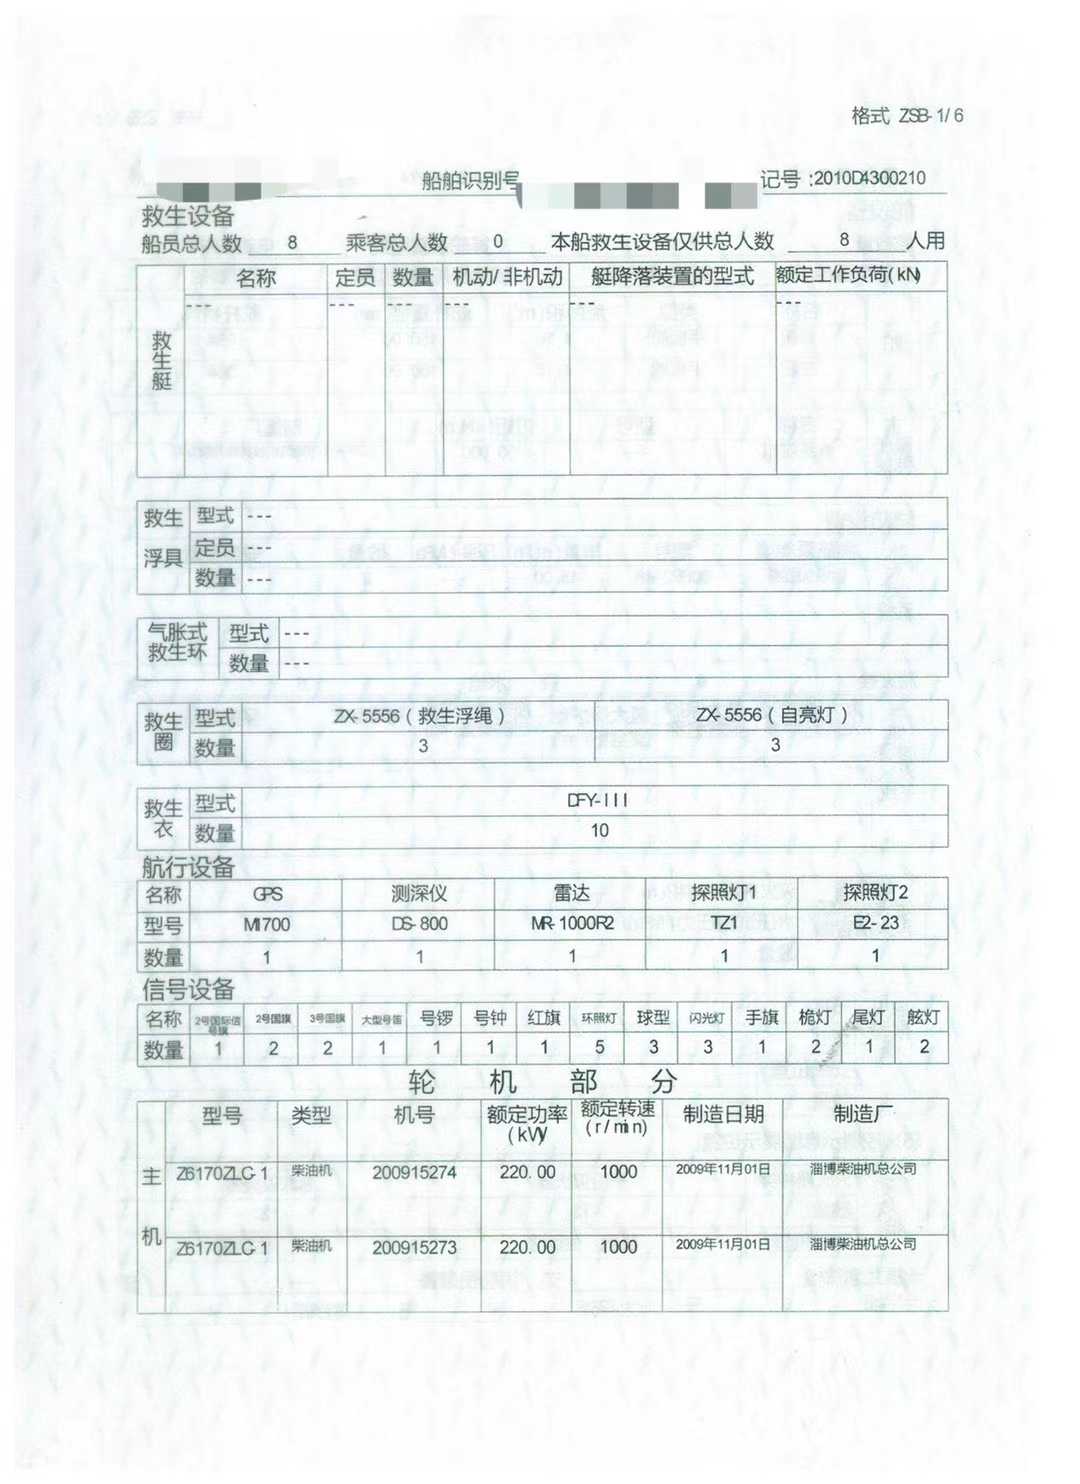 格式 ZSB-1/6
船舶识别号 记号:2010D4300210
救生设备
船员总人数 8 乘客总人数 0 本船救生设备仅供总人数 8 人用
救生艇
名称 定员 数量 机动/非机动 艇降落装置的型式 额定工作负荷(kN)
--- --- --- --- --- ---
救生浮具 型式 ---
定员 ---
数量 ---
气胀式救生环 型式 ---
数量 ---
救生圈 型式 ZX-5556(救生浮绳) ZX-5556(自亮灯)
数量 3 3
救生衣 型式 DFY-III
数量 10
航行设备
名称 GPS 测深仪 雷达 探照灯1 探照灯2
型号 MI700 DS-800 MR-1000R2 TZ1 E2-23
数量 1 1 1 1 1
信号设备
名称 2号国际信号旗 2号国旗 3号国旗 大型号笛 号锣 号钟 红旗 环照灯 球型 闪光灯 手旗 桅灯 尾灯 舷灯
数量 1 2 2 1 1 1 1 5 3 3 1 2 1 2
轮机部分
主机
型号 类型 机号 额定功率(kW) 额定转速(r/min) 制造日期 制造厂
Z6170ZLC-1 柴油机 200915274 220.00 1000 2009年11月01日 淄博柴油机总公司
Z6170ZLC-1 柴油机 200915273 220.00 1000 2009年11月01日 淄博柴油机总公司